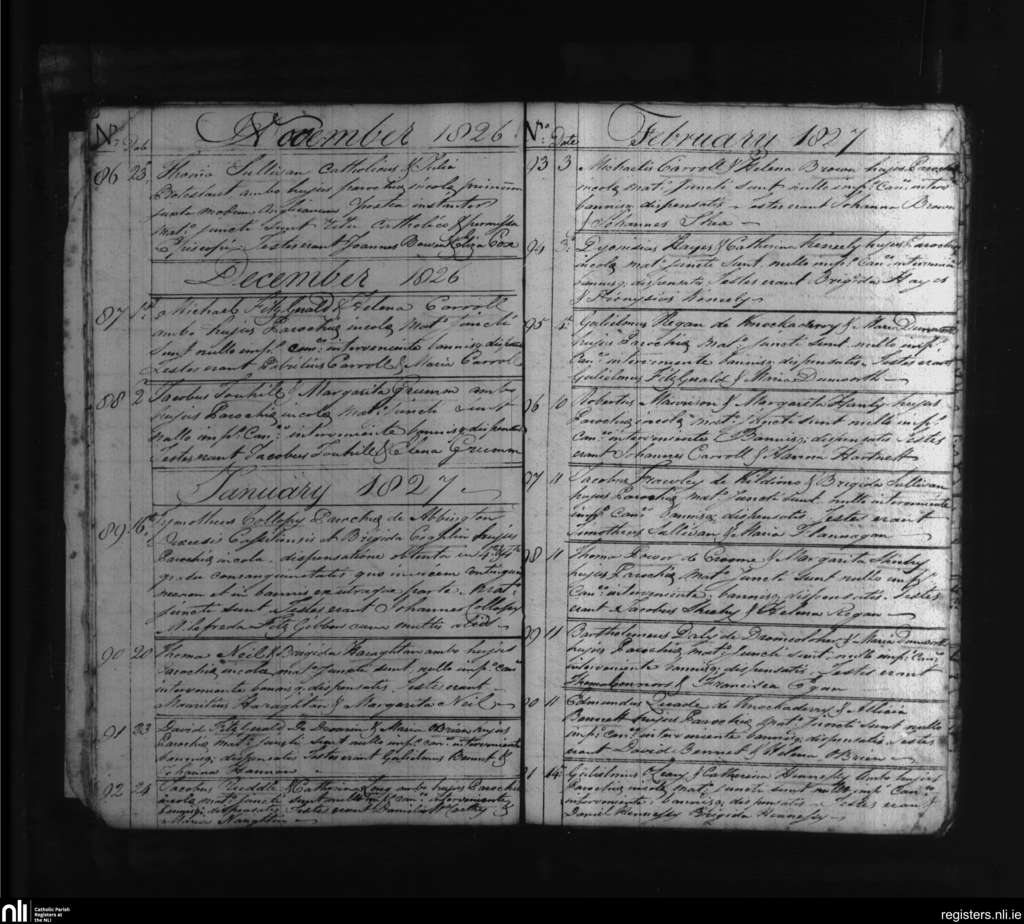 No. Date November 1826
86 25 Thoma Sullivan Catholicus &
Protestant ambo hujus parochiæ incolæ
juxta Anglicanum
Matr. juncti sunt &
Testes erant Joannes Bowen & Eliza Cox
December 1826
87 1st Michael FitzGerald & Helena Carroll
ambo hujus Parochiæ incolæ Matr. juncti
sunt nullo imp. Can. interveniente bannisq. dispensatis
Testes erant Patritius Carroll & Maria Carroll
88 2 Jacobus Touhill & Margarita ambo
hujus Parochiæ incolæ Matr. juncti sunt
nullo imp. Can. interveniente bannisq. dispensatis
Testes erant Jacobus Touhill & Elena
January 1827
89 16 Tymotheus Collopy Parochiæ de Abbington
Diocesis & Brigida Coghlin hujus
Parochiæ incola dispensatione obtenta in 4o. & 4to.
gr. consanguinitatis quo invicem
et in bannis ex utraque parte Matr.
juncti sunt Testes erant Johannes Collopy
FitzGibbon cum multis aliis
90 20 Thoma Neil & Brigida Haraghton ambo hujus
Parochiæ incolæ Matr. juncti sunt nullo imp. Can.
interveniente bannisq. dispensatis Testes erant
Mauritius Haraghton & Margarita Neil
91 23 David FitzGerald De & Maria OBrien hujus
Parochiæ Matr. juncti sunt nullo imp. can. interveniente
bannisq. dispensatis Testes erant Gulielmus Bennet &
Johanna Hannan
92 24 Jacobus & Catherina Long ambo hujus Parochiæ
incolæ Matr. juncti sunt nullo imp. can. interveniente
bannisq. dispensatis Testes erant Daniel McCarthy &
Maria Naughtin
No. Date February 1827
93 3 Michaelis Carroll & Helena Brown hujus Parochiæ
incolæ Matr. juncti sunt nullo imp. Can. interv.
bannisq. dispensatis Testes erant Johanna Brown
& Johannes Shea
94 3d. Dyonisius Hayes & Catherina Keneely hujus Parochiæ
incolæ Matr. juncti sunt nullo imp. Can. interveniente
bannisq. dispensatis Testes erant Brigida Hayes
& Dionysius Keneely
95 4 Gulielmus Regan de Knockaderry & Maria Dunworth
hujus Parochiæ Matr. juncti sunt nullo imp.
Can. interveniente bannisq. dispensatis Testes erant
Gulielmus FitzGerald & Maria Dunworth
96 10 Robertus Mawrison & Margarita Hanly hujus
Parochiæ incolæ Matr. juncti sunt nullo imp.
Can. interveniente Bannisq. dispensatis Testes
erant Johannes Carroll & Hanna Hartnett
97 11 Jacobus Frawley de Kildimo & Brigida Sullivan
hujus Parochiæ Matr. juncti sunt nullo interveniente
imp. Can. bannisq. dispensatis Testes erant
Timotheus Sullivan & Maria Flannagan
98 11 Thoma Power de Croome & Margarita Sheehy
hujus Parochiæ Matr. juncti sunt nullo imp.
Can. interveniente bannisq. dispensatis Testes
erant Jacobus Sheehy & Helena Regan
99 11 Bartholymeus Daly de Dromcolcher & Maria
hujus Parochiæ Matr. juncti sunt nullo imp. Can.
interveniente bannisq. dispensatis Testes erant
Thoma Connors & Francisca Egan
11 Edmundus Quade de Knockaderry &
Bennett hujus Parochiæ Matr. juncti sunt nullo
imp. Can. interveniente bannisq. dispensatis Testes
erant David Bennet & Helena OBrien
14 Gulielmus Leary & Catherina Hennessy Ambo hujus
Parochiæ incolæ Matr. juncti sunt nullo imp. Can.
interveniente bannisq. dispensatis Testes erant
Daniel Hennessy Brigida Hennessy
nli Catholic Parish
Registers at
the NLI
registers.nli.ie